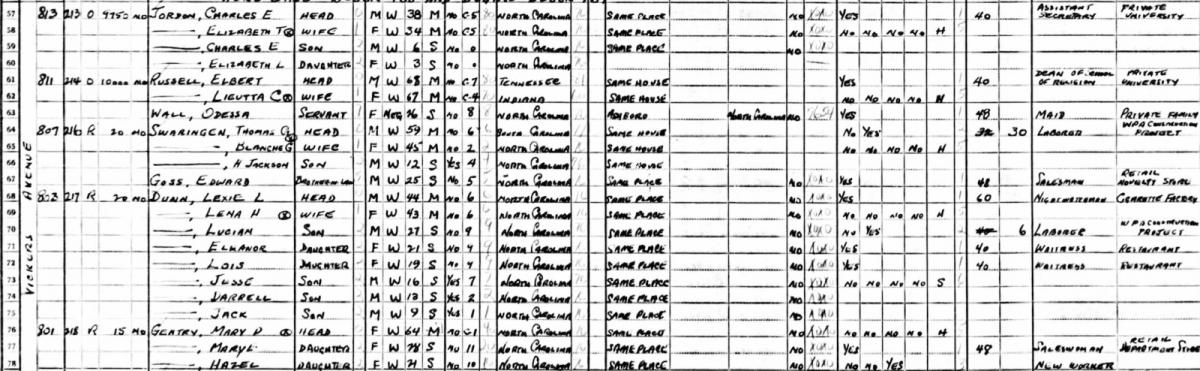 57 813 213 O 9950 No JORDON, CHARLES E HEAD M W 38 M No C-5 NORTH CAROLINA SAME PLACE No XOXO YES 40 ASSISTANT SECRETARY PRIVATE UNIVERSITY
58 ——, ELIZABETH T ⓧ WIFE F W 34 M No C5 NORTH CAROLINA SAME PLACE No No No No H
59 ——, CHARLES E SON M W 6 S No 0 NORTH CAROLINA SAME PLACE No
60 ——, ELIZABETH L DAUGHTER F W 3 S No NORTH CAROLINA
61 811 214 O 10000 No RUSSELL, ELBERT HEAD M W 68 M No C-7 TENNESSEE SAME HOUSE YES 40 DEAN OF SCHOOL OF RELIGION PRIVATE UNIVERSITY
62 ——, LIEUTTA C ⓧ WIFE F W 67 M No C-4 INDIANA SAME HOUSE No No No No H
63 WALL, ODESSA SERVANT F NEG S No 8 NORTH CAROLINA NORTH CAROLINA No YES 48 MAID PRIVATE FAMILY
64 807 216 R 20 No SWARINGEN, THOMAS HEAD M W 59 M No 6 SOUTH CAROLINA SAME HOUSE No YES 30 LABORER WPA CONSTRUCTION PROJECT
65 ——, BLANCHE G WIFE F W 45 M No 2 NORTH CAROLINA SAME HOUSE No No No No H
66 ——, H JACKSON SON M W 12 S YES 4 NORTH CAROLINA SAME HOUSE
67 GOSS, EDWARD BROTHER IN LAW M W 25 S No 5 NORTH CAROLINA SAME PLACE No XOXO YES 48 SALESMAN RETAIL NOVELTY STORE
68 803 217 R 20 No DUNN, LEXIE L HEAD M W 44 M No 6 NORTH CAROLINA SAME PLACE No XOXO YES 60 NIGHTWATCHMAN CIGARETTE FACTORY
69 ——, LENA H ⓧ WIFE F W 43 M No 6 NORTH CAROLINA SAME PLACE No XOXO No No No No H
70 ——, LUCIAN SON M W 27 S No 9 NORTH CAROLINA SAME PLACE No XOXO No YES 6 LABORER WPA CONSTRUCTION PROJECT
71 ——, ELEANOR DAUGHTER F W 21 S No 9 NORTH CAROLINA SAME PLACE No XOXO YES 40 WAITRESS RESTAURANT
72 ——, LOIS DAUGHTER F W 19 S No NORTH CAROLINA SAME PLACE No XOXO YES 40 WAITRESS RESTAURANT
73 ——, JESSE SON M W 16 S YES 7 NORTH CAROLINA SAME PLACE No XOXO No No No No S
74 ——, DARRELL SON M W 13 S YES 2 NORTH CAROLINA SAME PLACE No
75 ——, JACK SON M W 9 S YES 1 NORTH CAROLINA SAME PLACE No
76 801 218 R 15 No GENTRY, MARY D ⓧ HEAD F W 64 M No C-1 NORTH CAROLINA SAME PLACE No XOXO No No No No H
77 ——, MARYE DAUGHTER F W S No 11 NORTH CAROLINA SAME PLACE No XOXO YES 48 SALESWOMAN RETAIL DEPARTMENT STORE
78 ——, HAZEL DAUGHTER F W 21 S No 10 NORTH CAROLINA SAME PLACE No XOXO No No YES NEW WORKER
VICKERS AVENUE